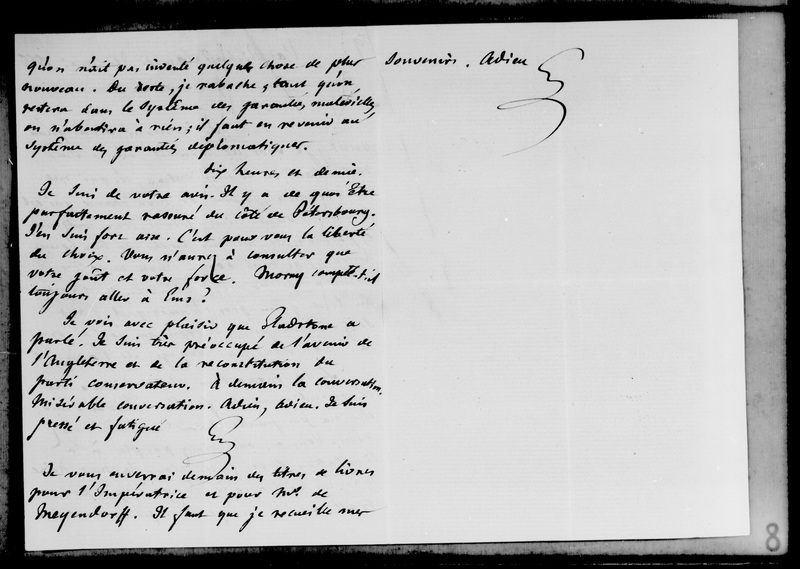 qu'on n'ait pas inventé quelque chose de plus
nouveau. Du reste, je rabache ; tant qu'on
restera dans le système des garanties matérielles,
on n'aboutira à rien ; il faut en revenir au
système des garanties diplomatiques.
Dix heures et demie.
Je suis de votre avis. Il y a de quoi être
parfaitement rassuré du côté de Pétersbourg.
J'en suis fort aise. C'est pour vous la liberté
du choix. Vous n'aurez à consulter que
votre goût et votre force. Morny compte-t-il
toujours aller à Ems ?
Je vois avec plaisir que Gladstone a
parlé. Je suis très préoccupé de l'avenir de
l'Angleterre et de la reconstitution du
parti conservateur. À demain la conversation.
Misérable conversation. Adieu, adieu. Je suis
pressé et fatigué
G
Je vous enverrai demain des titres de livres
pour l'Impératrice et pour Mr. de
Meyendorff. Il faut que je recueille mes
souvenirs. Adieu
G
8